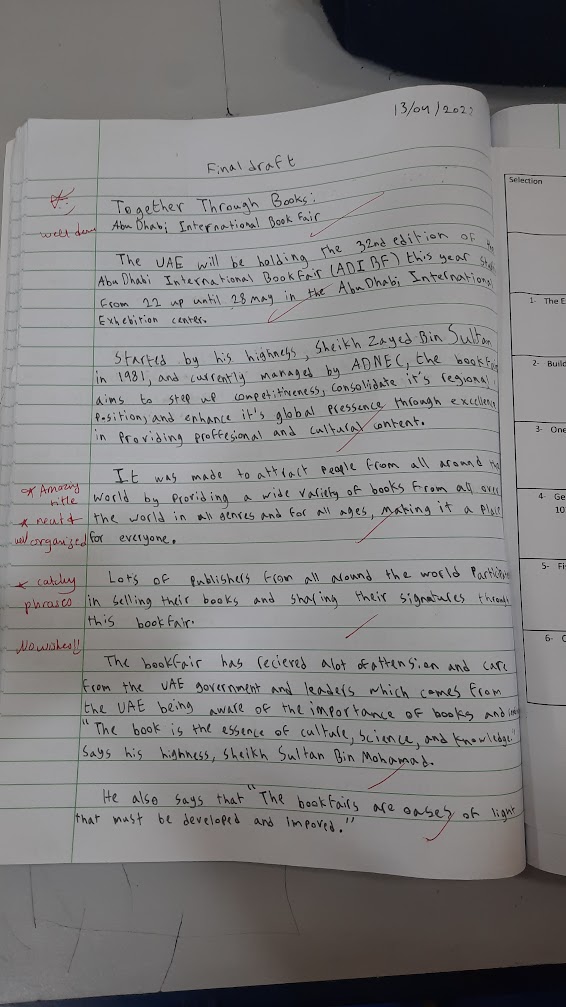 13/04/202
Final draft
Together Through Books:
Abu Dhabi International Book Fair
well done
The UAE will be holding the 32nd edition of
Abu Dhabi International Book Fair (ADIBF) this year
From 22 up until 28 May in the Abu Dhabi International
Exhebition center.
Started by his highness, Sheikh Zayed Bin Sultan
in 1981, and currently managed by ADNEC, the bookfair
aims to step up competitiveness, consolidate it's regional
Position, and enhance it's global pressence through excellence
in providing proffesional and cultural content.
It was made to attract people from all around
world by providing a wide variety of books from all over
the world in all genres and for all ages, making it a place
for everyone.
* Amazing
title
* neat &
well organised
Lots of publishers from all around the world Participate
in selling their books and sharing their signatures through
this bookfair.
* catchy
phrases
The bookfair has recieved alot of attension and care
From the UAE government and leaders which comes from
the UAE being aware of the importance of books and
"The book is the essence of culture, science, and knowledge"
says his highness, sheikh Sultan Bin Mohamad.
He also says that "The bookfairs are oases of light
that must be developed and impoved."
Selection
1- The E
2- Build
3- One
4- Ge
10
5- Fi
6- C